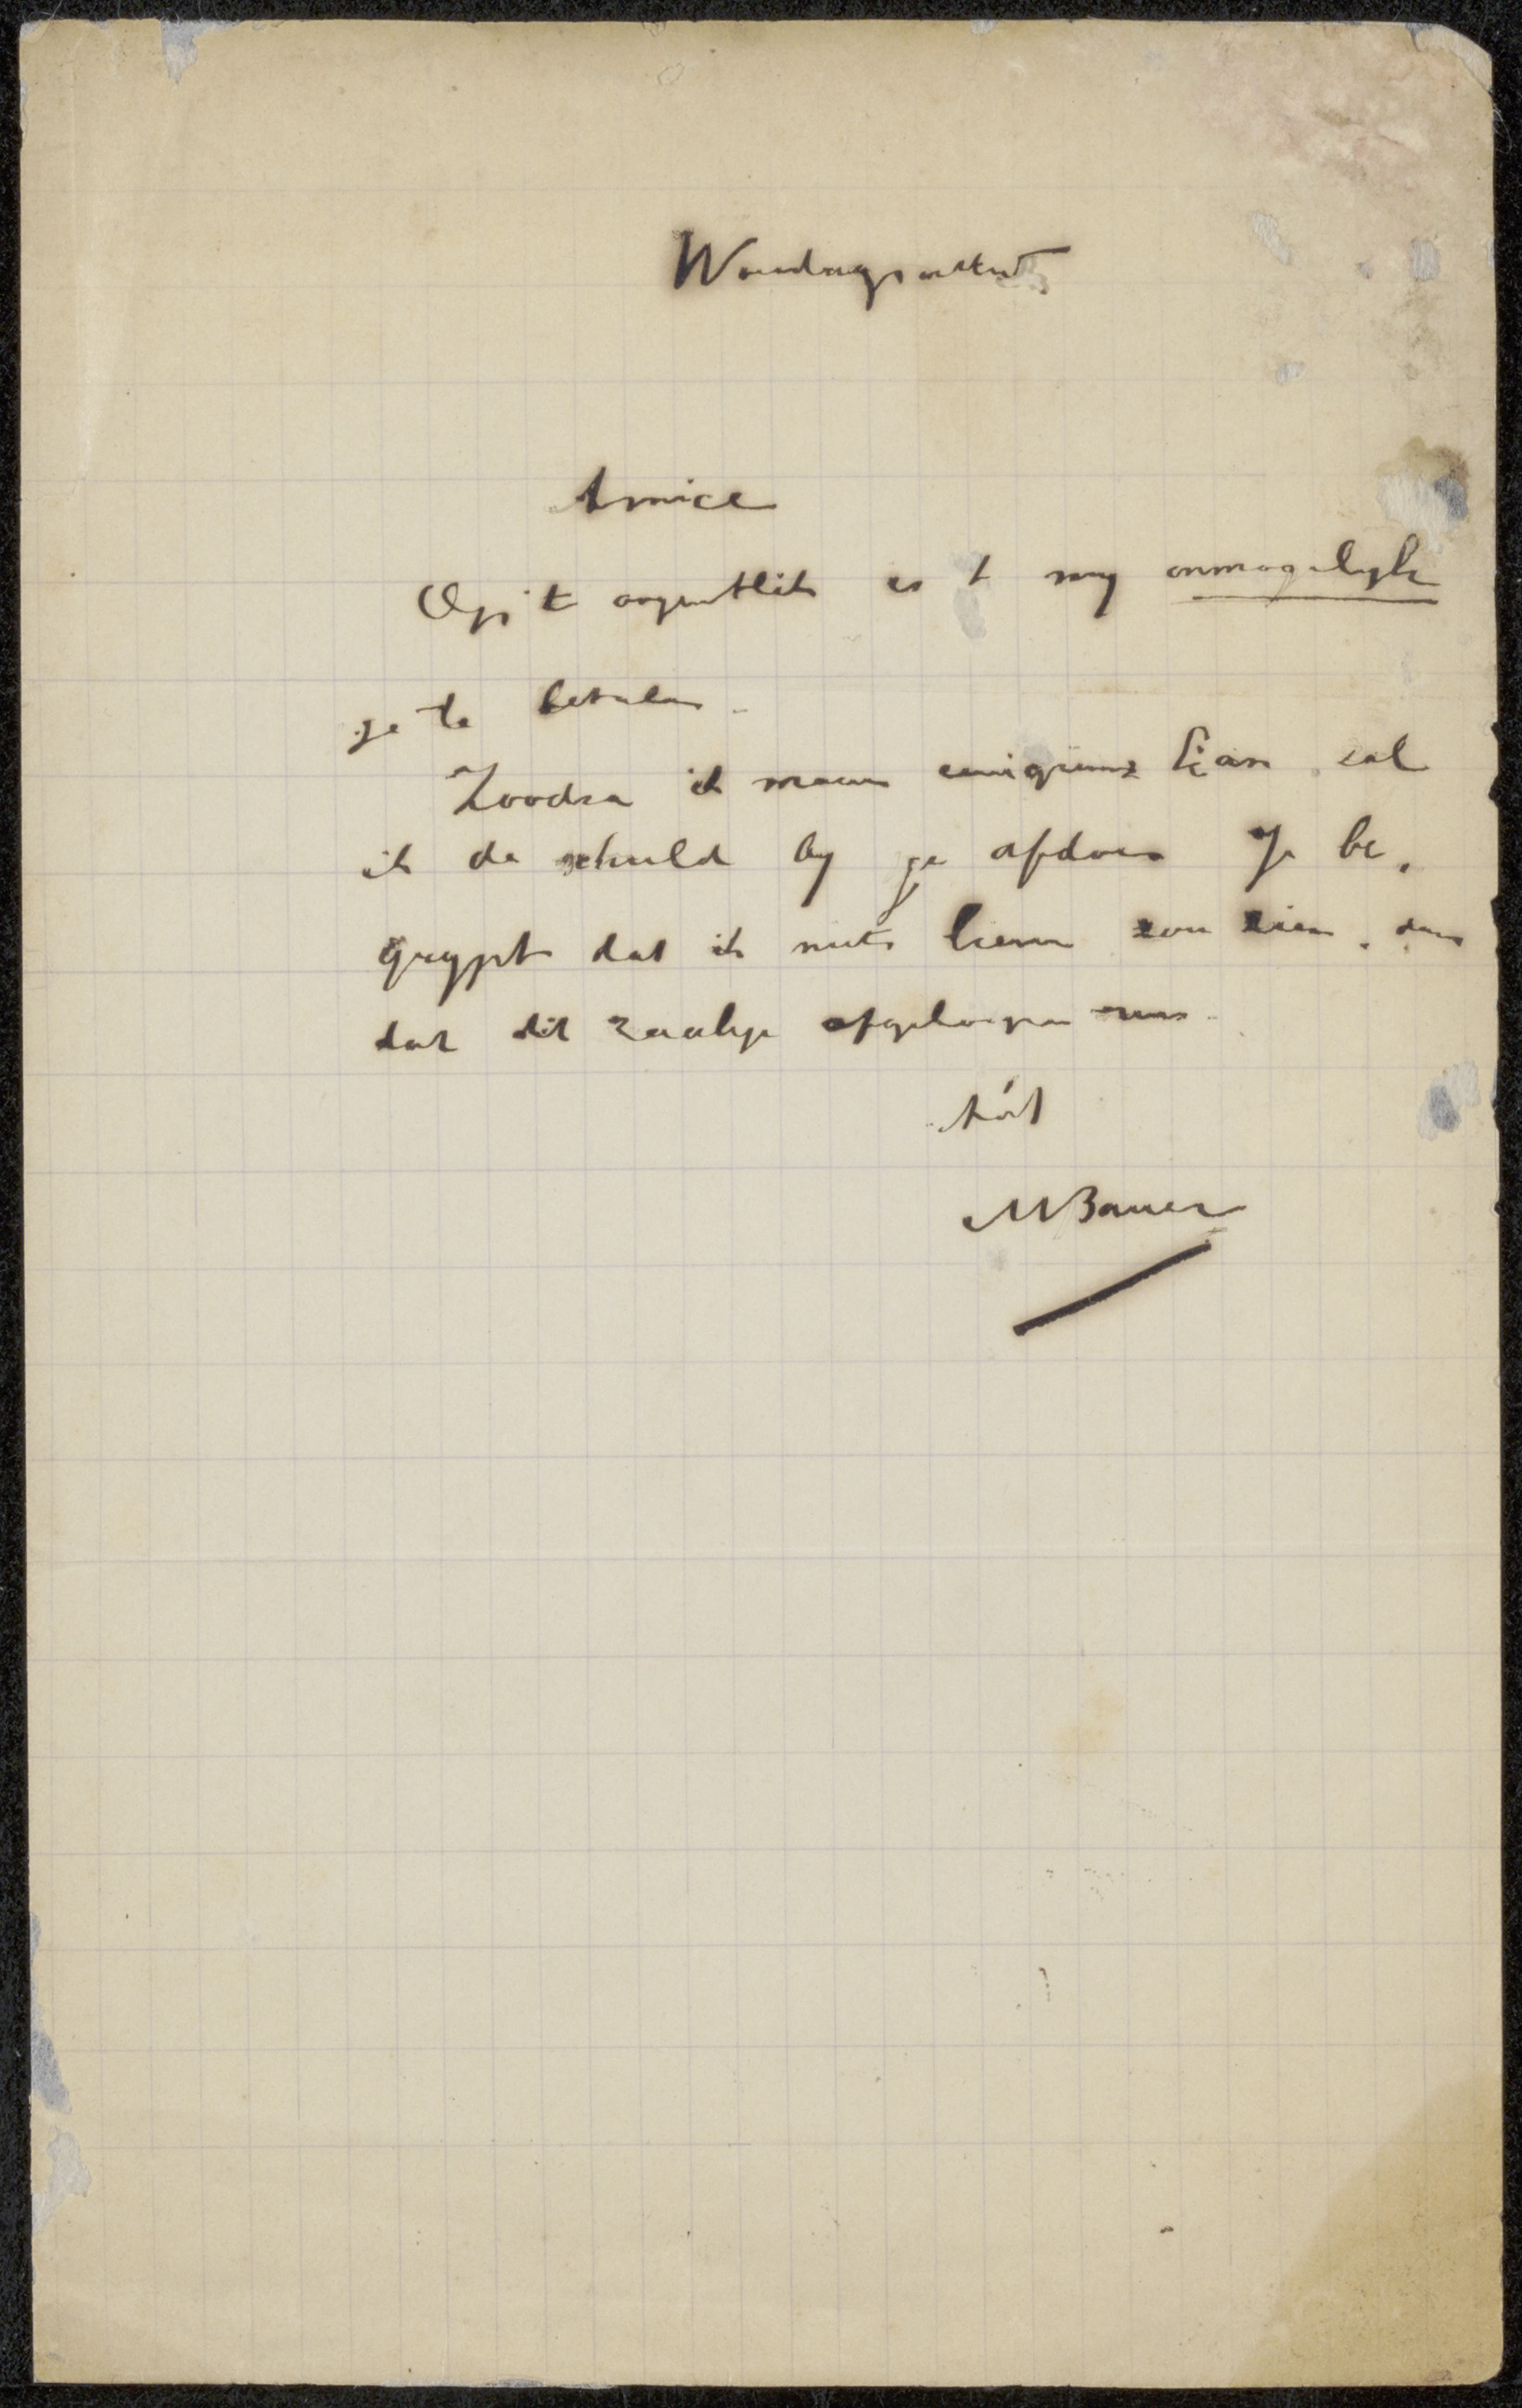 Woensdagochtend
Amice
Op 't oogenblik is 't my onmogelyk
je te betalen.
Zoodra ik maar eenigzins kan zal
ik de schuld by je afdoen Je be,
grypt dat ik niets liever zou zien, dan
dat dit zaakje afgeloopen was.
tàt
MBauer